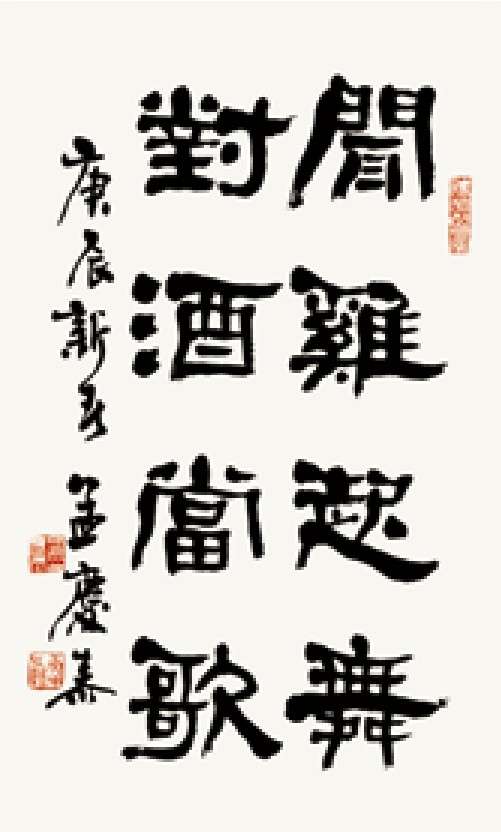 聞雞起舞
對酒當歌
庚辰新春 孟慶泰